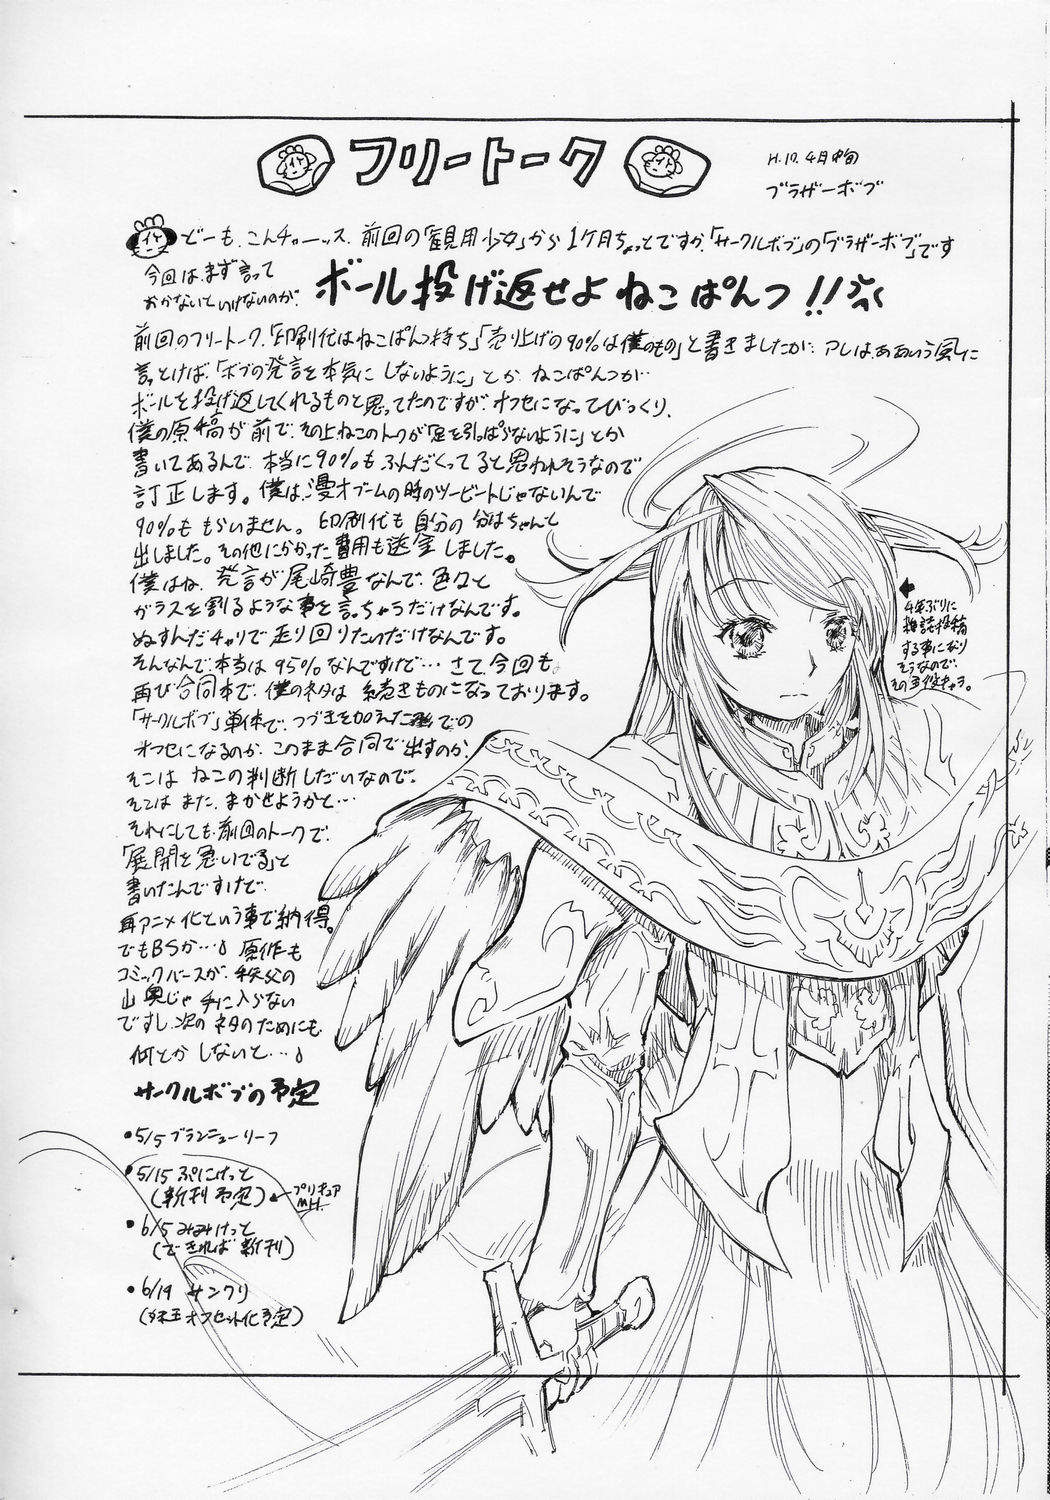 フリートーク
H.17.4月中旬
ブラザーボブ
どーも、こんチャーッス、前回の「観用少女」から1ケ月ちょっとですが、「サークルボブ」の「ブラザーボブ」です
今回は、まず言って
おかないといけないのが、
ボール投げ返せよ ねこぱんつ!!
前回のフリートーク、「印刷代はねこぱんつ持ち」「売り上げの90%は僕のもの」と書きましたが、アレはああいう風に
言っとけば、「ボブの発言を本気にしないように」とか、ねこぱんつが…
ボールを投げ返してくれるものと思ってたのですが、オフセになってびっくり、
僕の原稿が前で、その上ねこのトークが「足を引っぱらないように」とか
書いてあるんで、本当に90%もふんだくってると思われそうなので
訂正します。僕は漫才ブームの時のツービートじゃないんで
90%ももらいません。印刷代も自分の分はちゃんと
出しました。その他にかかった費用も送金しました。
僕はね、発言が尾崎豊なんで、色々と
ガラスを割るような事を言っちゃうだけなんです。
ぬすんだチャリで走り回りたいだけなんです。
そんなんで、本当は95%なんですけど… さて、今回も、
再び合同本で、僕のネタは続きものになっております。
「サークルボブ」単体で、つづきを加えた形での
オフセになるのか、このまま合同で出すのか、
そこはねこの判断しだいなので、
そこはまた、まかせようかと…
それにしても、前回のトークで、
「展開を急いでる」と
書いたんですけど、
再アニメ化という事で納得。
でもBSか…。原作も
コミックバースが、秩父の
山奥じゃ手に入らない
ですし、次のネタのためにも
何とかしないと…。
サークルボブの予定
•5/5 ブランニューリーフ
•5/15 ぷにけっと
(新刊予定)←プリキュアMH.
•6/5 みみけっと
(できれば新刊)
•6/19 サンクリ
オフセット化予定)
4年ぶりに
雑誌投稿
する事になり
そうなので、
その主役キャラ。